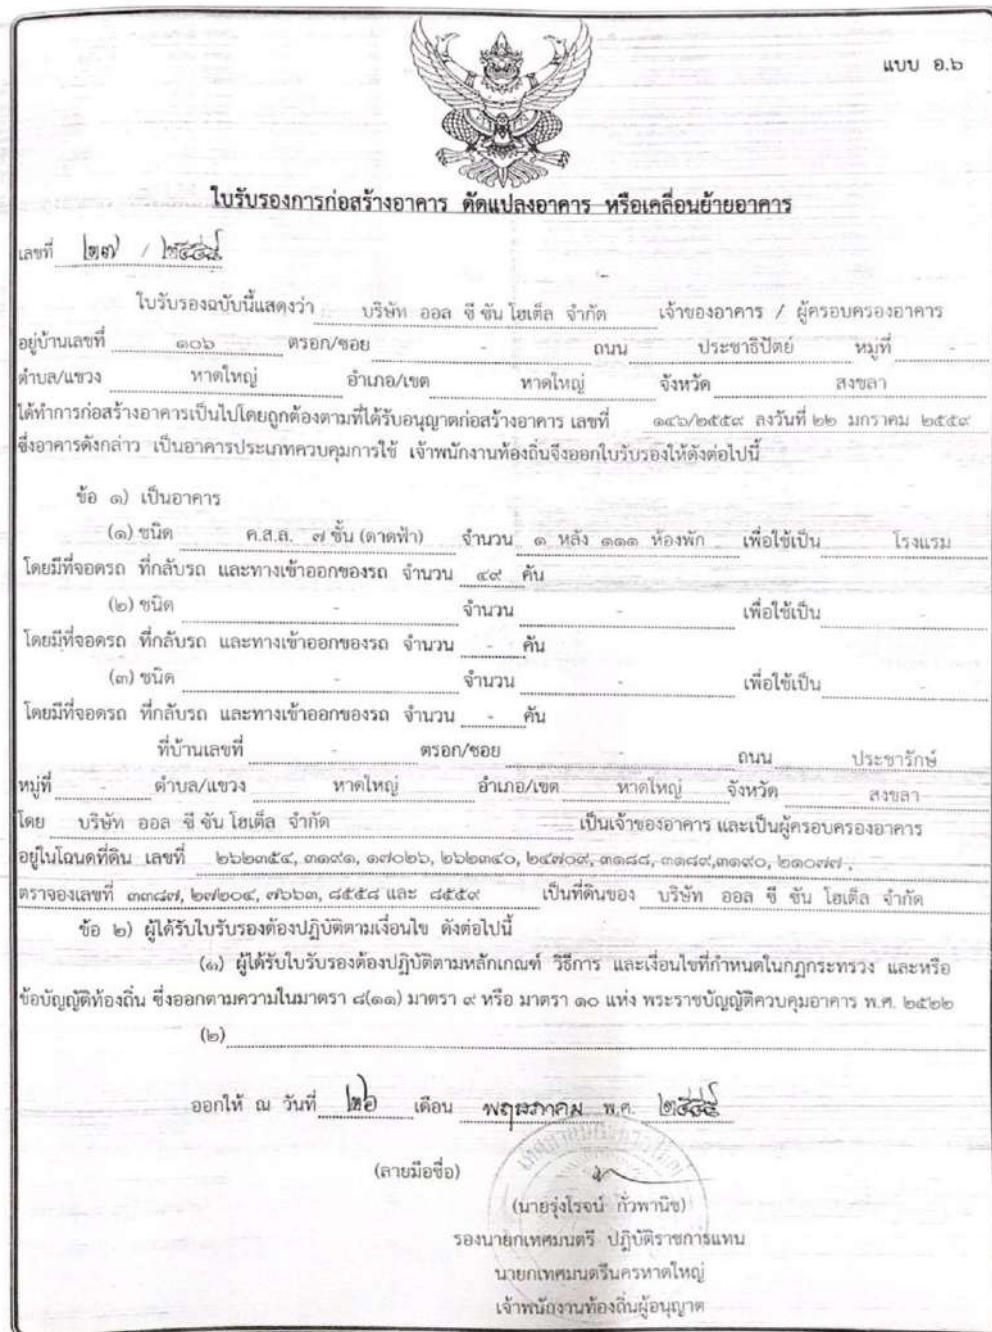 แบบ อ.๖
ใบรับรองการก่อสร้างอาคาร ดัดแปลงอาคาร หรือเคลื่อนย้ายอาคาร
เลขที่ ๒๗ / ๒๕๕๙
ใบรับรองฉบับนี้แสดงว่า บริษัท ออล ซี ซัน โฮเต็ล จำกัด เจ้าของอาคาร / ผู้ครอบครองอาคาร
อยู่บ้านเลขที่ ๑๐๖ ตรอก/ซอย - ถนน ประชาธิปัตย์ หมู่ที่ -
ตำบล/แขวง หาดใหญ่ อำเภอ/เขต หาดใหญ่ จังหวัด สงขลา
ได้ทำการก่อสร้างอาคารเป็นไปโดยถูกต้องตามที่ได้รับอนุญาตก่อสร้างอาคาร เลขที่ ๑๔๖/๒๕๕๙ ลงวันที่ ๒๒ มกราคม ๒๕๕๙
ซึ่งอาคารดังกล่าว เป็นอาคารประเภทควบคุมการใช้ เจ้าพนักงานท้องถิ่นจึงออกใบรับรองให้ดังต่อไปนี้
ข้อ ๑) เป็นอาคาร
(๑) ชนิด ค.ส.ล. ๗ ชั้น (ดาดฟ้า) จำนวน ๑ หลัง ๑๑๑ ห้องพัก เพื่อใช้เป็น โรงแรม
โดยมีที่จอดรถ ที่กลับรถ และทางเข้าออกของรถ จำนวน ๔๙ คัน
(๒) ชนิด - จำนวน - เพื่อใช้เป็น -
โดยมีที่จอดรถ ที่กลับรถ และทางเข้าออกของรถ จำนวน - คัน
(๓) ชนิด - จำนวน - เพื่อใช้เป็น -
โดยมีที่จอดรถ ที่กลับรถ และทางเข้าออกของรถ จำนวน - คัน
ที่บ้านเลขที่ - ตรอก/ซอย - ถนน ประชารักษ์
หมู่ที่ - ตำบล/แขวง หาดใหญ่ อำเภอ/เขต หาดใหญ่ จังหวัด สงขลา
โดย บริษัท ออล ซี ซัน โฮเต็ล จำกัด เป็นเจ้าของอาคาร และเป็นผู้ครอบครองอาคาร
อยู่ในโฉนดที่ดิน เลขที่ ๒๖๒๓๕๔, ๓๑๙๑, ๑๗๐๒๖, ๒๖๒๓๔๐, ๒๔๗๐๙, ๓๑๘๘, ๓๑๘๙,๓๑๙๐, ๒๑๐๗๗,
ตราจองเลขที่ ๓๓๘๗, ๒๗๒๐๔, ๗๖๖๓, ๘๕๕๘ และ ๘๕๕๙ เป็นที่ดินของ บริษัท ออล ซี ซัน โฮเต็ล จำกัด
ข้อ ๒) ผู้ได้รับใบรับรองต้องปฏิบัติตามเงื่อนไข ดังต่อไปนี้
(๑) ผู้ได้รับใบรับรองต้องปฏิบัติตามหลักเกณฑ์ วิธีการ และเงื่อนไขที่กำหนดในกฎกระทรวง และหรือ
ข้อบัญญัติท้องถิ่น ซึ่งออกตามความในมาตรา ๘(๑๑) มาตรา ๙ หรือ มาตรา ๑๐ แห่ง พระราชบัญญัติควบคุมอาคาร พ.ศ. ๒๕๒๒
(๒)
ออกให้ ณ วันที่ ๒๖ เดือน พฤษภาคม พ.ศ. ๒๕๕๙
(ลายมือชื่อ)
(นายรุ่งโรจน์ กั่วพานิช)
รองนายกเทศมนตรี ปฏิบัติราชการแทน
นายกเทศมนตรีนครหาดใหญ่
เจ้าพนักงานท้องถิ่นผู้อนุญาต